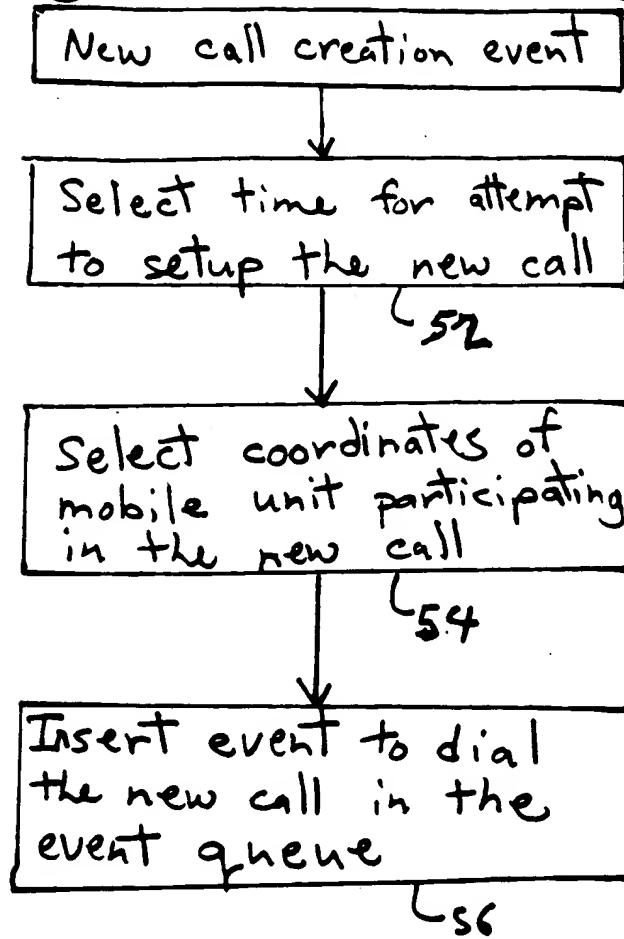 New call creation event
Select time for attempt
to setup the new call
52
Select coordinates of
mobile unit participating
in the new call
54
Insert event to dial
the new call in the
event queue
56